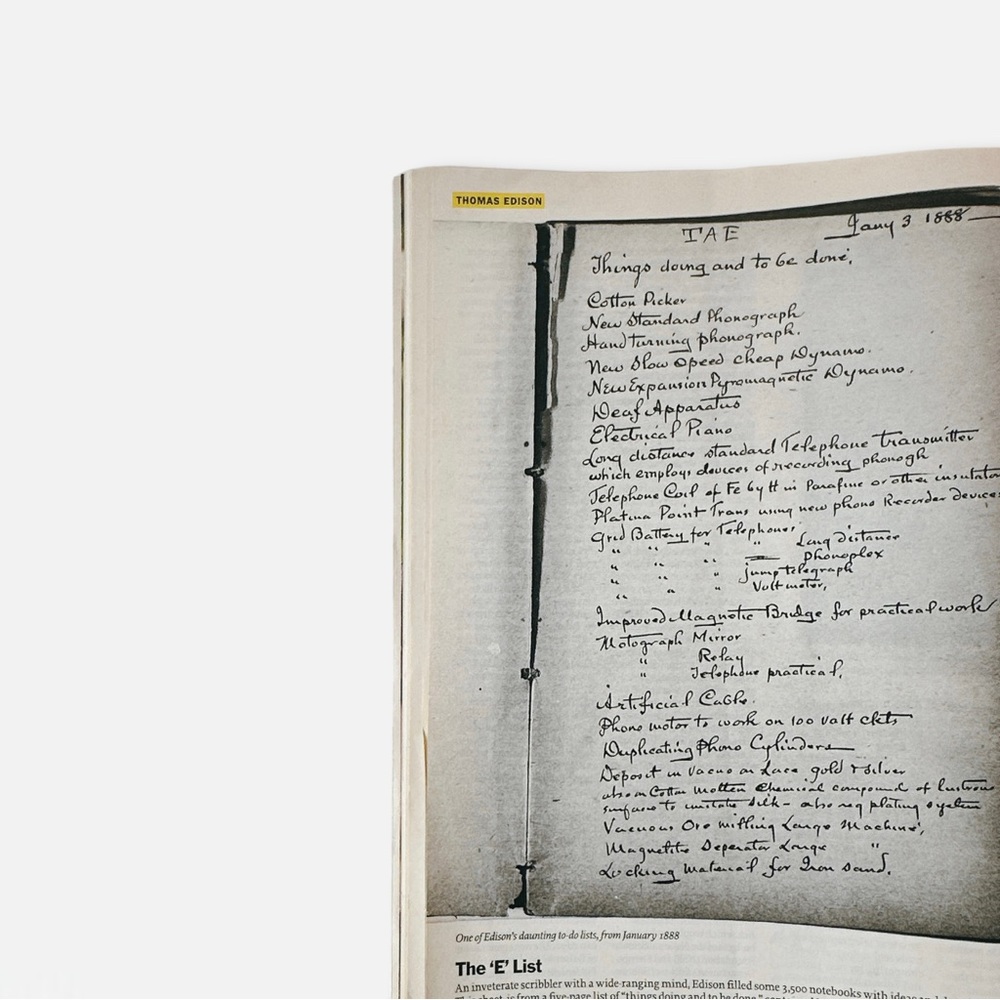 THOMAS EDISON
TAE
Jany 3 1888
Things doing and to be done,
Cotton Picker
New Standard Phonograph
Hand turning phonograph.
New Slow Speed cheap Dynamo.
New Expansion Pyromagnetic Dynamo.
Deaf Apparatus
Electrical Piano
Long distance standard Telephone transmitter
which employs devices of recording phonogh
Telephone Coil of Fe by H in Parafine or other insulator
Platina Point Trans using new phono Recorder devices
Grid Battery for Telephones,
" " " " Long Distance
" " " Phonoplex
" " " jump telegraph
" " " Voltmeter,
Improved Magnetic Bridge for practical work
Motograph Mirror
" Relay
" Telephone practical,
Artificial Cable.
Phono motor to work on 100 volt ckts
Duplicating Phono Cylinders
Deposit in vacuo on Lace gold & silver
also on Cotton Molten Chemical compound of lustrous
surface to imitate silk - also reg plating system
Vacuous Ore milling Large Machine,
Magnetic Seperator Large "
Locking Material for Iron sand.
One of Edison's daunting to-do lists, from January 1888
The 'E' List
An inveterate scribbler with a wide-ranging mind, Edison filled some 3,500 notebooks with ideas
sheet is from a five-page list of "things doing and to be done,"